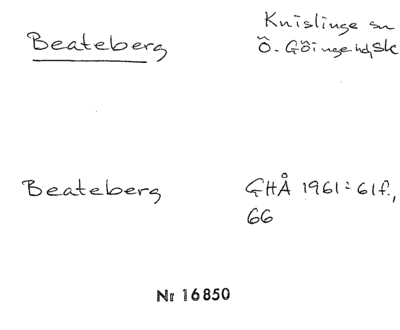 Beateberg
Knislinge sn
Ö. Göinge hd, Sk
Beateberg
GHÅ 1961: 61f.,
66
Nr 16850